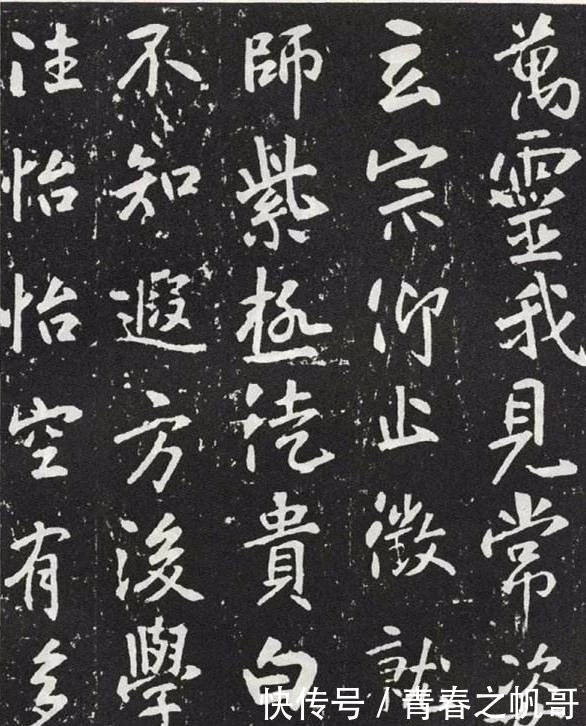 萬靈我見常
玄宗仰止徵就
師紫極貴白
不知遐方後學
怡怡空有多
快传号 / 青春之帆哥